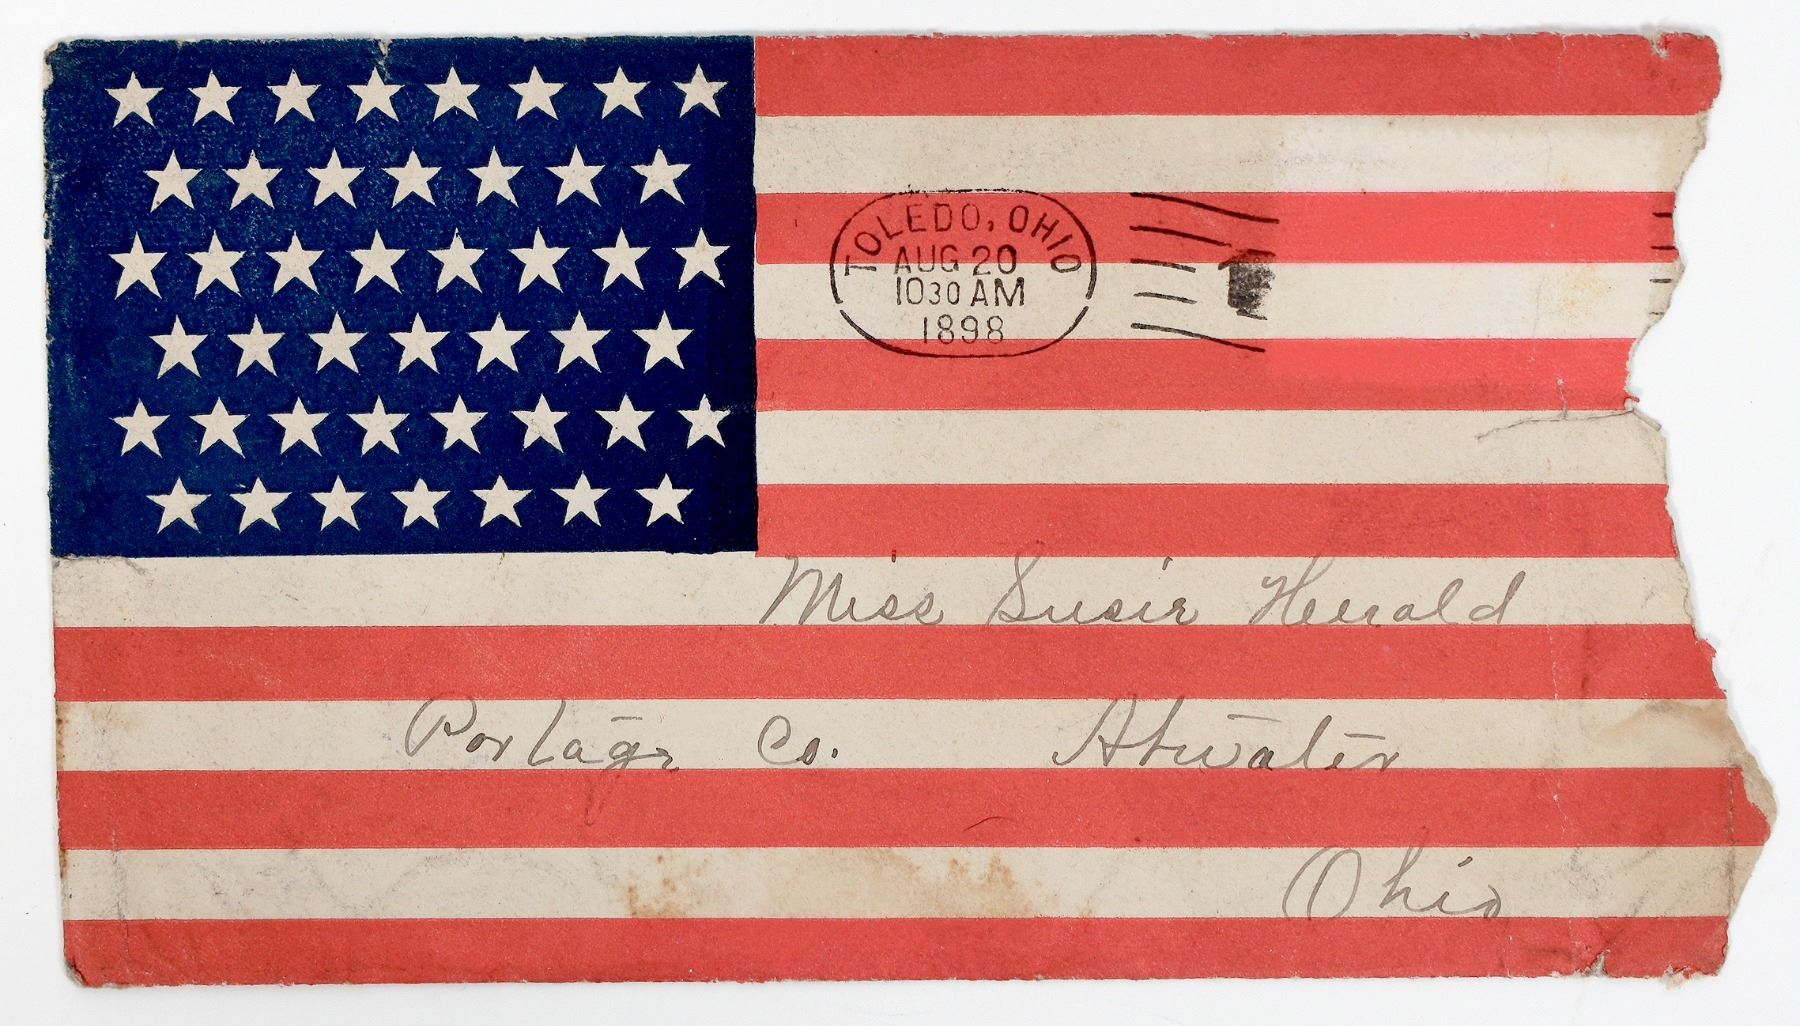 TOLEDO, OHIO
AUG 20
1030 AM
1898
Miss Susie Herald
Portage Co. Atwater
Ohio